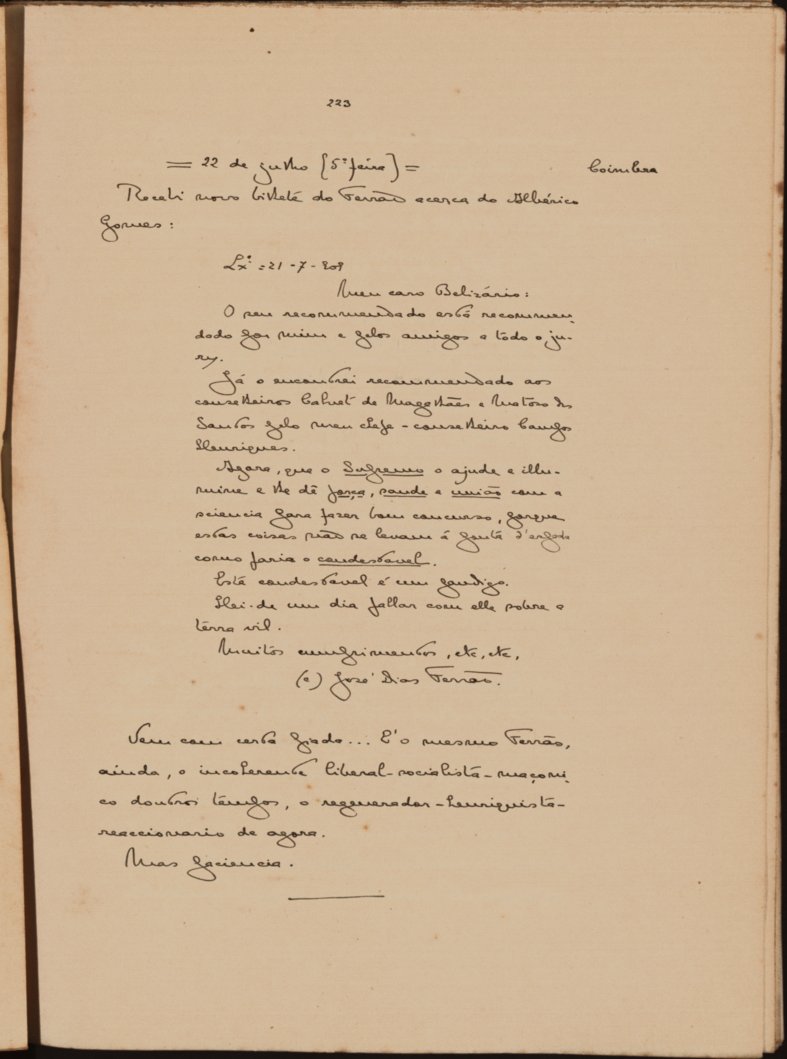 223
= 22 de julho (5ª feira) = Coimbra
Recebi novo bilhete do Ferrão acerca do Albérico
Gomes:
Lxª = 21-7-909
Meu caro Belizário:
O seu recommendado está recommen-
dado por mim e pelos amigos a tôdo o ju-
ry.
Já o encontrei recommendado aos
conselheiros Calvet de Magalhães e Matoso dos
Santos pelo meu chefe - conselheiro Campos
Henriques.
Agora, que o Supremo o ajude e illu-
mine e lhe dê força, saude e união com a
sciencia para fazer bom concurso, porque
estas coisas não se levam á ponta d'espada
como faria o condestavel.
Este condestavel é um pandigo.
Hei-de um dia fallar com elle sobre a
terra vil.
Muitos cumprimentos, etc, etc,
(a) José Dias Ferrão.
Vem com certa piada... E' o mesmo Ferrão,
ainda, o incoherente liberal-socialista-maçoni-
co doutros tempos, o regenerador-henriquista-
reaccionario de agora.
Mas paciencia.